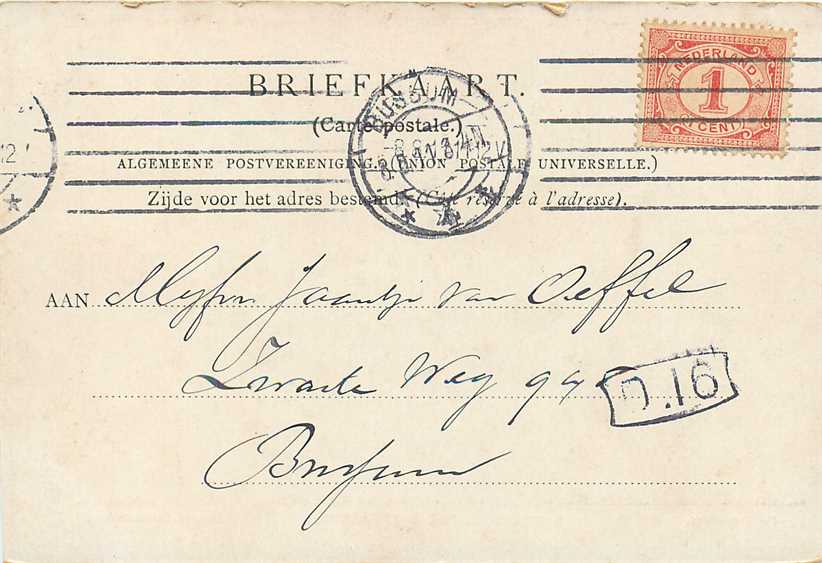 BRIEFKAART.
(Carte postale.)
ALGEMEENE POSTVEREENIGING. (UNION POSTALE UNIVERSELLE.)
Zijde voor het adres bestemd. (Côté réservé à l'adresse).
NEDERLAND
1
CENT
BUSSUM
12
AAN Mejfr. Jaantje van Oeffel
Zwarte Weg
D.16
Bussum